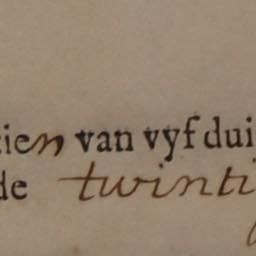 tien van vyf dui
de twinti